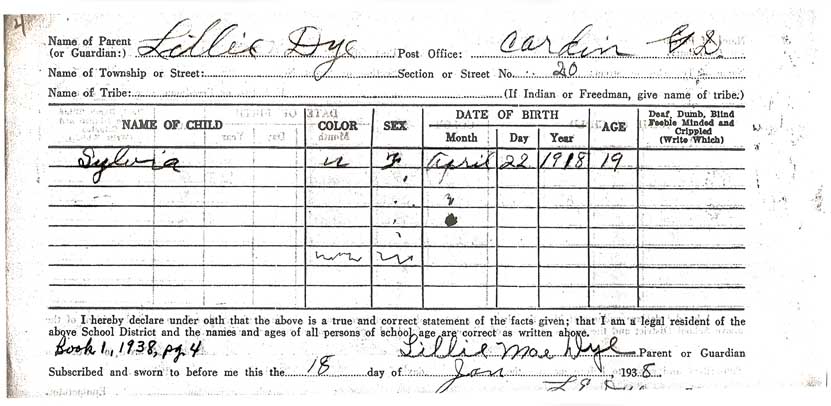 4
Name of Parent
(or Guardian:) Lillie Dye Post Office: Cardin
Name of Township or Street: Section or Street No. 20
Name of Tribe: (If Indian or Freedman, give name of tribe.)
NAME OF CHILD COLOR SEX DATE OF BIRTH AGE Deaf, Dumb, Blind
Feeble Minded and
Crippled
(Write Which)
Month Day Year
Sylvia April 22 1918 19
I hereby declare under oath that the above is a true and correct statement of the facts given; that I am a legal resident of the
above School District and the names and ages of all persons of school age are correct as written above.
Book 1, 1938, pg. 4
Lillie Mae Dye Parent or Guardian
Subscribed and sworn to before me this the 18 day of Jan 1938